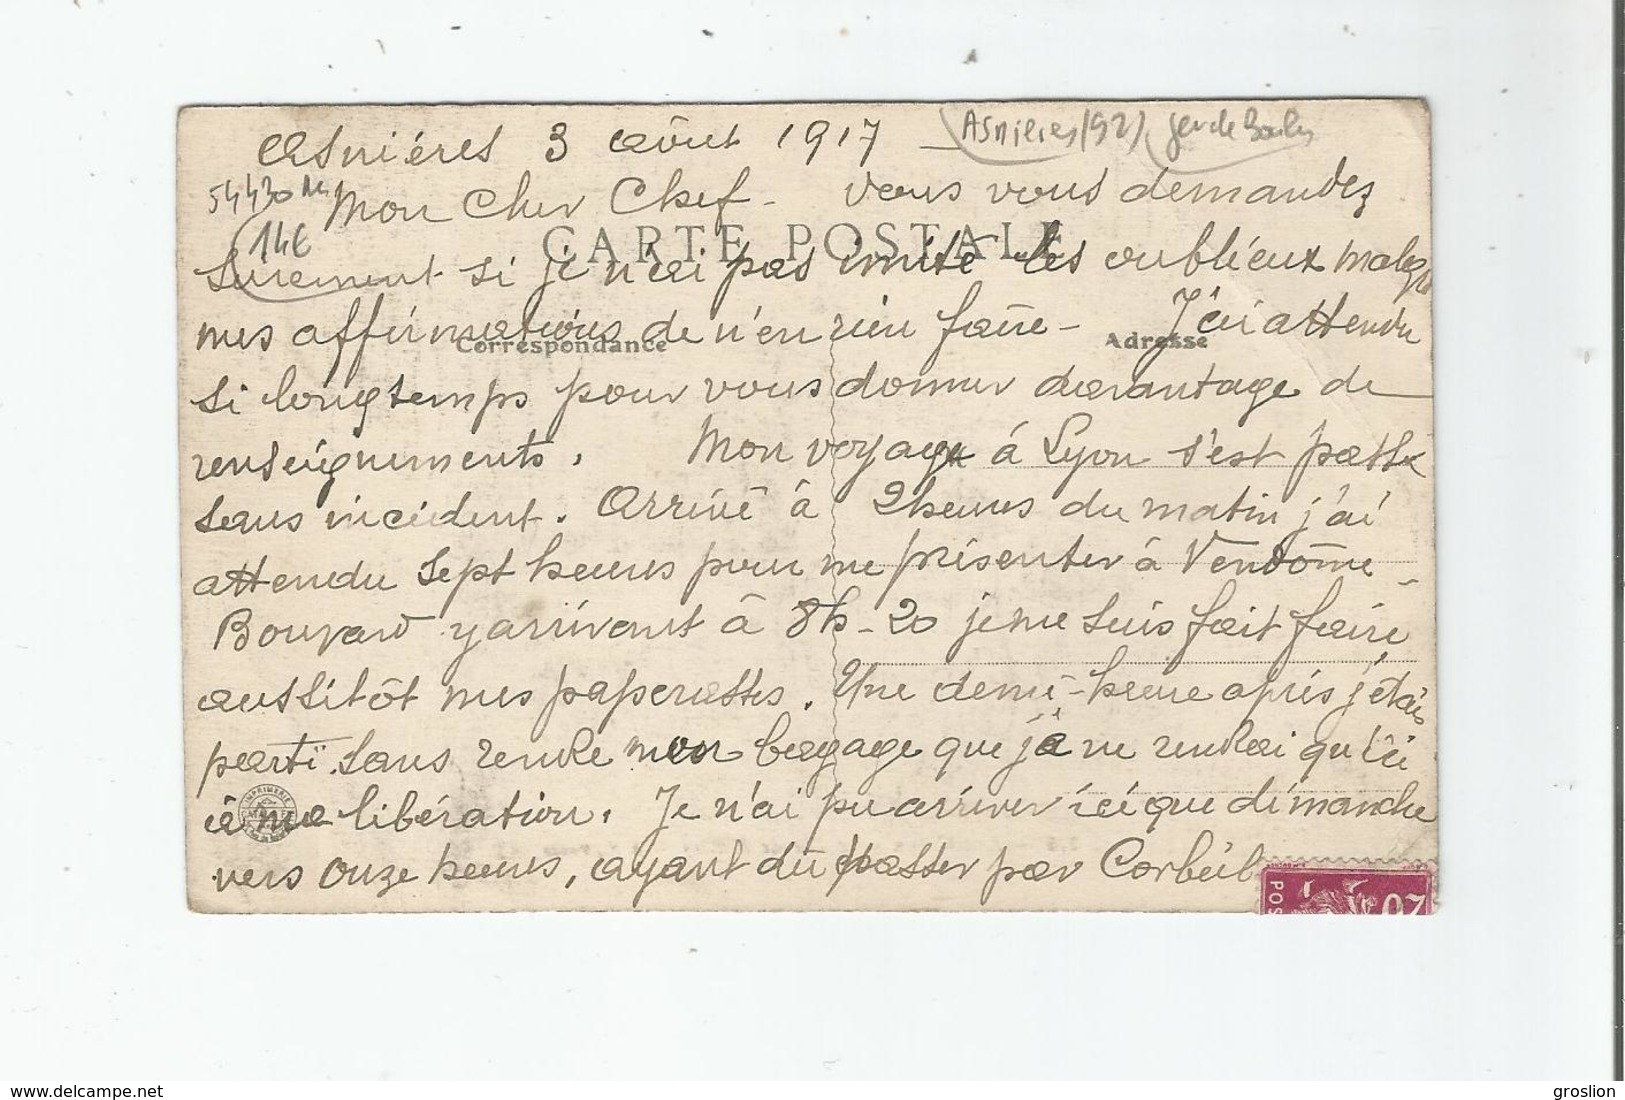 Asnières 3 août 1917
Asnières (92) jeu de Boules
54430
14€
Mon Cher Chef - Vous vous demandez
CARTE POSTALE
surement si je n'ai pas imité les oublieux malgré
mes affirmations de n'en rien faire - J'ai attendu
Correspondance
Adresse
si longtemps pour vous donner davantage de
renseignements. Mon voyage à Lyon s'est passé
sans incident. Arrivé à 2 heures du matin j'ai
attendu sept heures pour me présenter à Vendôme -
y arrivant à 8h-20 je me suis fait faire
aussitôt mes paperasses. Une demi-heure après j'étais
parti sans rendre mon bagage que je ne rendrai qu'ici
à ma libération. Je n'ai pu arriver ici que dimanche
IMPRIMERIE
vers onze heures, ayant dû passer par Corbeil
POS
20
https://www.delcampe.net
groslion